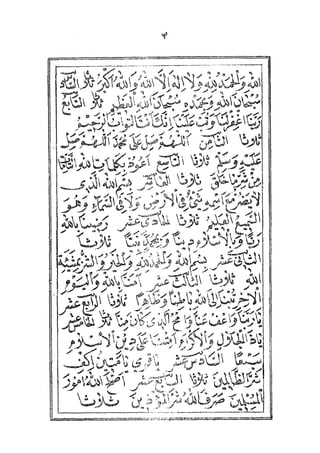 الله والحمد لله ولا اله الا الله والله اكبر ثلاثا السادس
سبحان الله وبحمده سبحان الله العظيم ثلاثا السابع
ربنا اغفر لنا وتب علينا انك انت التواب الرحيم
ثلاثا الثامن اللهم صل على محمد اللهم صل
عليه وسلم ثلاثا التاسع اعوذ بكلمات الله التامات
من شر ما خلق ثلاثا العاشر بسم الله الذى
لا يضر مع اسمه شئ فى الارض ولا فى السماء وهو
السميع العليم ثلاثا الحادى عشر رضينا بالله
ربا وبالاسلام دينا وبمحمد نبيا ثلاثا
عشر بسم الله والحمد لله والخير والشر بمشيئة
الله ثلاثا الثالث عشر آمنا بالله واليوم
الاخر تبنا الى الله باطنا وظاهرا ثلاثا الرابع عشر
يا ربنا واعف عنا وامح الذى كان منا ثلاثا الخامس عشر
يا ذا الجلال والاكرام امتنا على دين الاسلام
سبعا السادس عشر يا قوى يا متين اكف
شر الظالمين ثلاثا السابع عشر اصلح الله امور
المسلمين صرف الله شر المؤذين ثلاثا